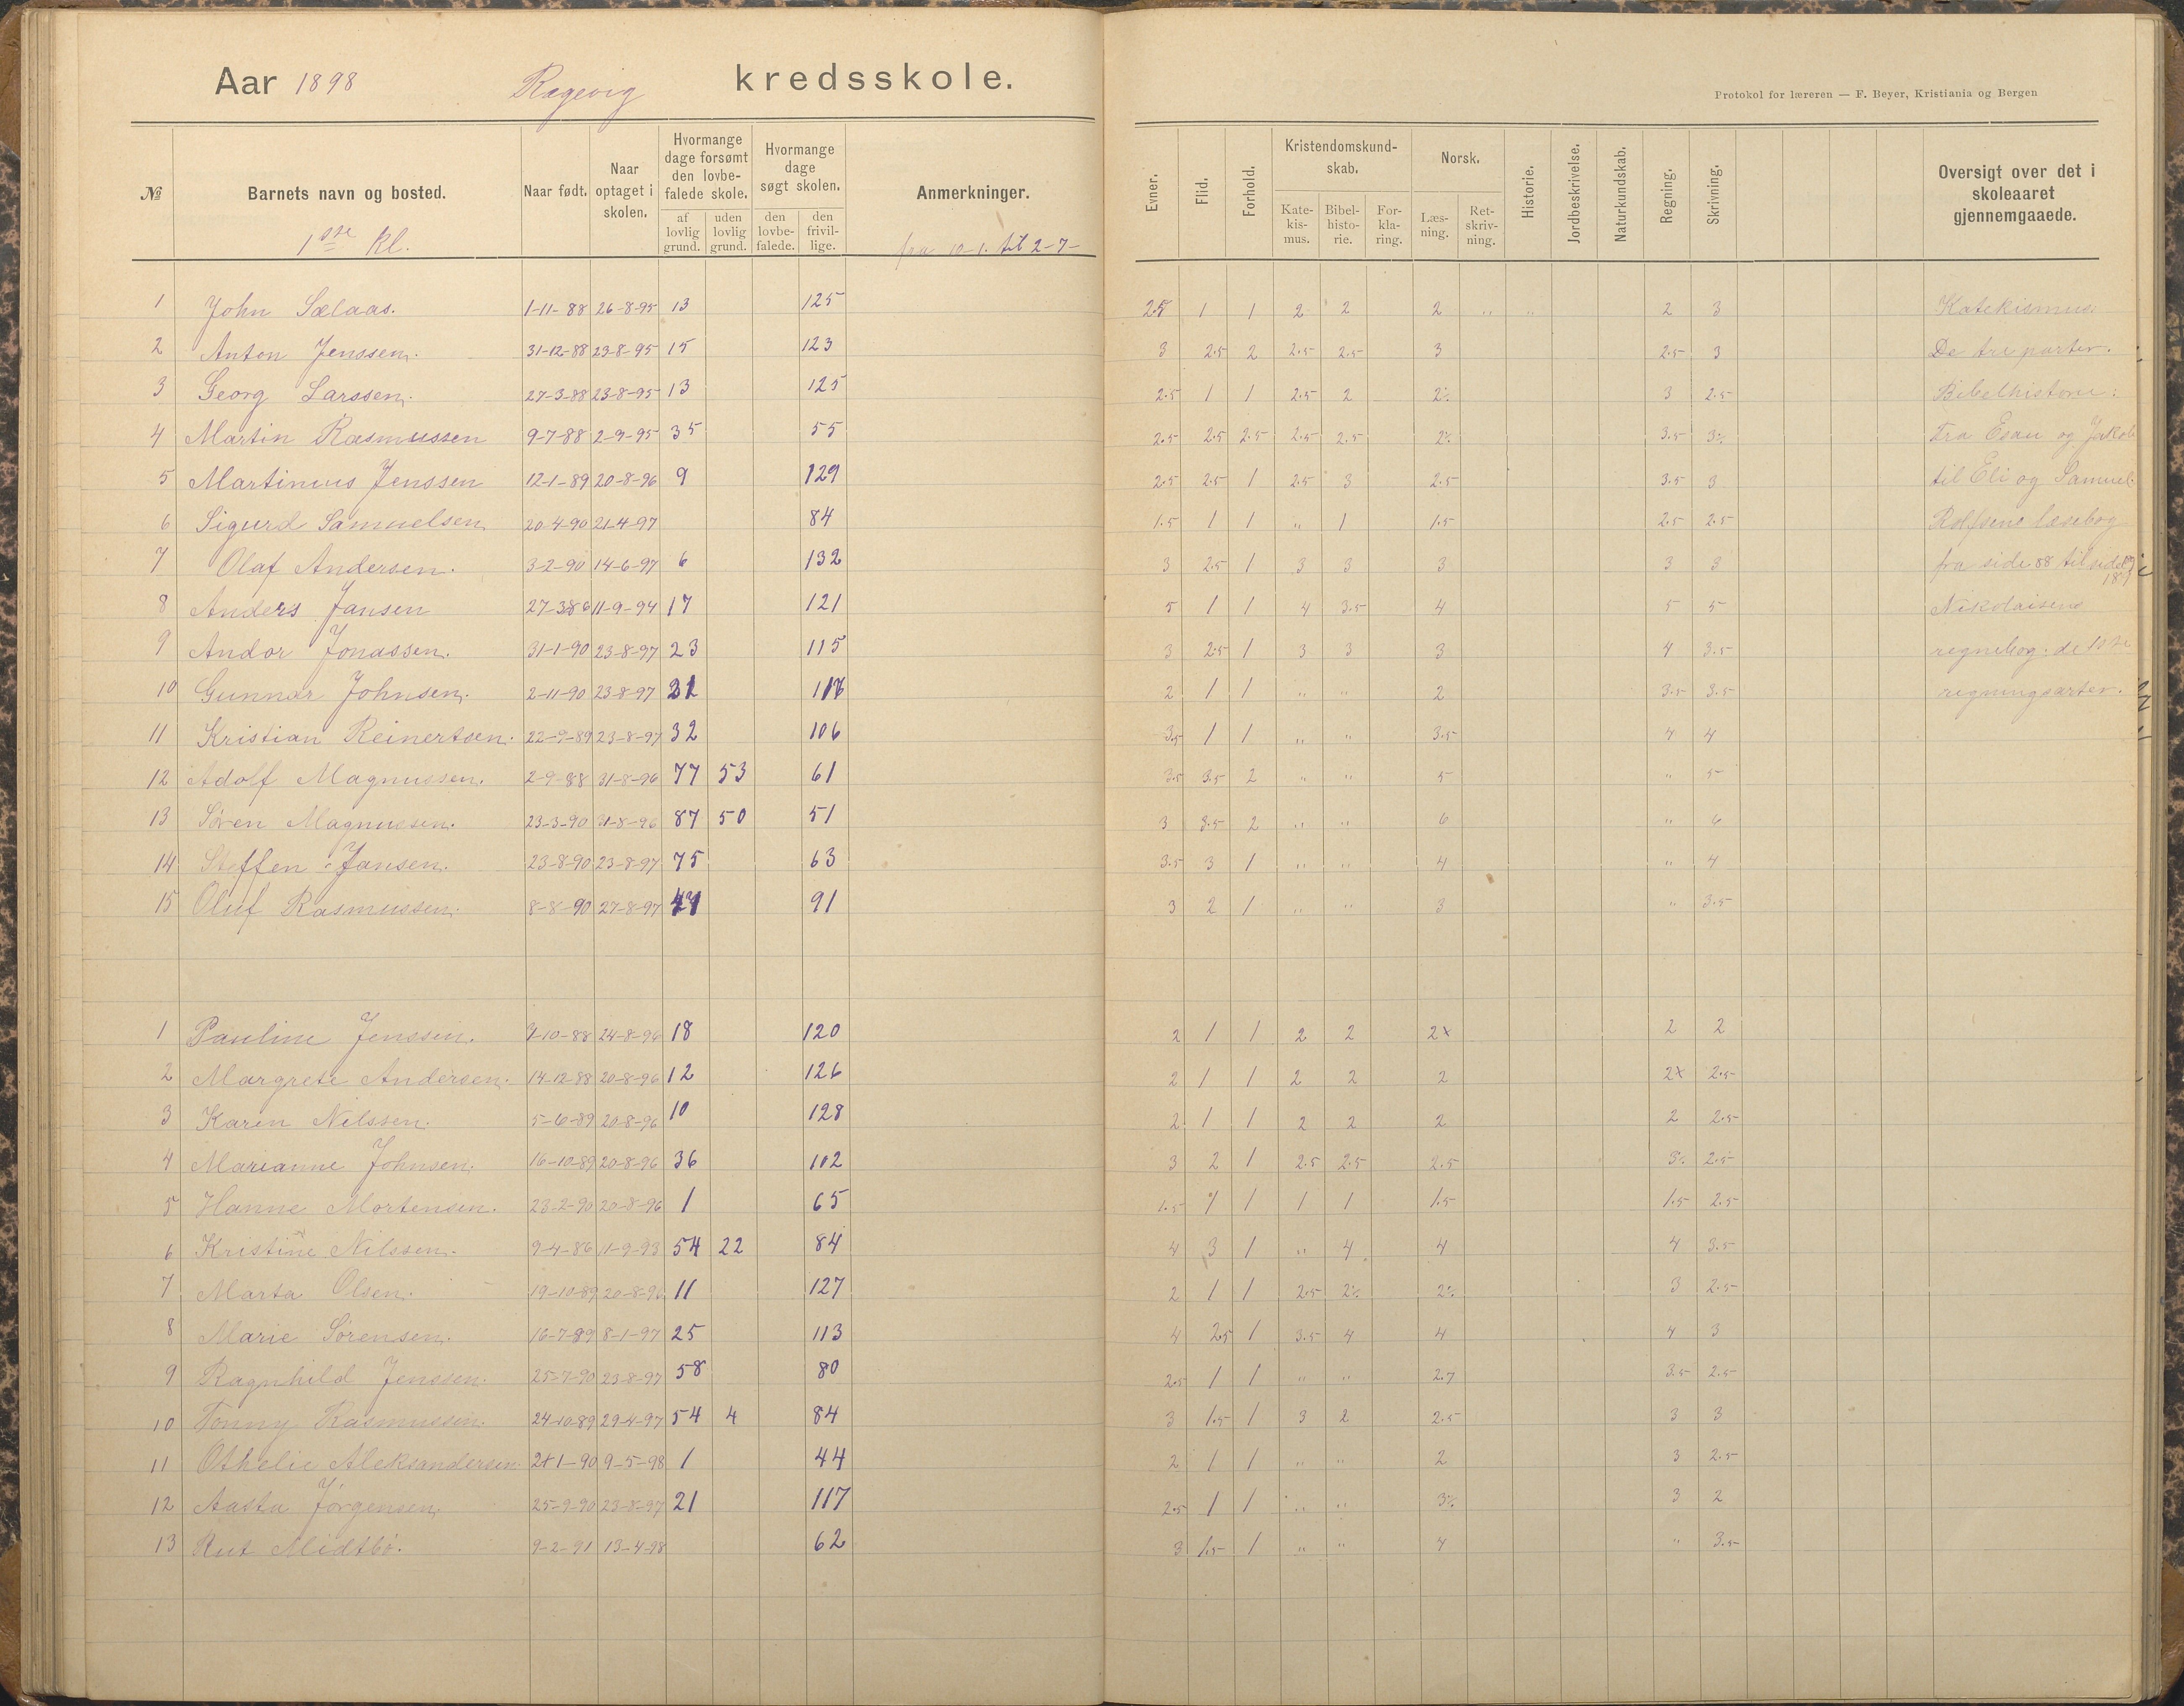 Aar 1898 Ragevig kredsskole.
Protokol for læreren — F. Beyer, Kristiania og Bergen
№ Barnets navn og bosted. Naar født. Naar optaget i skolen. Hvormange dage forsømt den lovbefalede skole. af lovlig grund. uden lovlig grund. Hvormange dage søgt skolen. den lovbefalede. den frivillige. Anmerkninger. Evner. Flid. Forhold. Kristendomskundskab. Katekismus. Bibelhistorie. Forklaring. Norsk. Læsning. Retskrivning. Historie. Jordbeskrivelse. Naturkundskab. Regning. Skrivning. Oversigt over det i skoleaaret gjennemgaaede.
1ste kl. fra 10-1. til 2-7-
1 John Sælaas. 1-11-88 26-8-95 13 125 2.5 1 1 2 2 2 " " 2 3 Katekismus:
2 Anton Jenssen. 31-12-88 23-8-95 15 123 3 2.5 2 2.5 2.5 3 2.5 3 De tre parter.
3 Georg Larssen. 27-3-88 23-8-95 13 125 2.5 1 1 2.5 2 2% 3 2.5 Bibelhistorie:
4 Martin Rasmussen 9-7-88 2-9-95 35 55 2.5 2.5 2.5 2.5 2.5 2% 3.5 3% Fra Esau og Jakob
5 Martinius Jenssen 12-1-89 20-8-96 9 129 2.5 2.5 1 2.5 3 2.5 3.5 3 til Eli og Samuel.
6 Sigurd Samuelsen 20-4-90 21-4-97 84 1.5 1 1 " 1 1.5 2.5 2.5 Rolfsens læsebog
7 Olaf Andersen. 3-2-90 14-6-97 6 132 3 2.5 1 3 3 3 3 3 fra side 88 til side
8 Anders Jansen 27-3-86 11-9-94 17 121 5 1 1 4 3.5 4 5 5 Nikolaisens
9 Andor Jonassen. 31-1-90 23-8-97 23 115 3 2.5 1 3 3 3 4 3.5 regnebog. de
10 Gunnar Johnsen. 2-11-90 23-8-97 21 117 2 1 1 " " 2 3.5 3.5 regningsarter.
11 Kristian Reinertsen. 22-9-89 23-8-97 32 106 3.5 1 1 " " 3.5 4 4
12 Adolf Magnussen. 2-9-88 31-8-96 77 53 61 3.5 3.5 2 " " 5 " 5
13 Søren Magnussen. 23-3-90 31-8-96 87 50 51 3 3.5 2 " " 6 " 6
14 Steffen Jansen. 23-8-90 23-8-97 75 63 3.5 3 1 " " 4 " 4
15 Oluf Rasmussen. 8-8-90 27-8-97 47 91 3 2 1 " " 3 " 3.5
1 Pauline Jenssen. 7-10-88 24-8-96 18 120 2 1 1 2 2 2x 2 2
2 Margrete Andersen. 14-12-88 20-8-96 12 126 2 1 1 2 2 2 2x 2.5
3 Karen Nilssen. 5-6-89 20-8-96 10 128 2 1 1 2 2 2 2 2.5
4 Marianne Johnsen. 16-10-89 20-8-96 36 102 3 2 1 2.5 2.5 2.5 3% 2.5
5 Hanne Mortensen. 23-2-90 20-8-96 1 65 1.5 1 1 1 1 1.5 1.5 2.5
6 Kristine Nilssen. 9-4-86 11-9-93 54 22 84 4 3 1 " 4 4 4 3.5
7 Marta Olsen. 19-10-89 20-8-96 11 127 2 1 1 2.5 2% 2% 3 2.5
8 Marie Sørensen. 16-7-89 8-1-97 25 113 4 2.5 1 3.5 4 4 4 3
9 Ragnhild Jenssen. 25-7-90 23-8-97 58 80 2.5 1 1 " " 2.7 3.5 2.5
10 Tonny Rasmussen. 24-10-89 29-4-97 54 4 84 3 1.5 1 3 2 2.5 3 3
11 Othelie Aleksandersen. 21-1-90 9-5-98 1 44 2 1 1 " " 2 3 2.5
12 Aasta Jørgensen. 25-9-90 23-8-97 21 117 2.5 1 1 " " 3% 3 2
13 Rut Midtbø. 9-2-91 13-4-98 62 3 1.5 1 " " 4 " 3.5